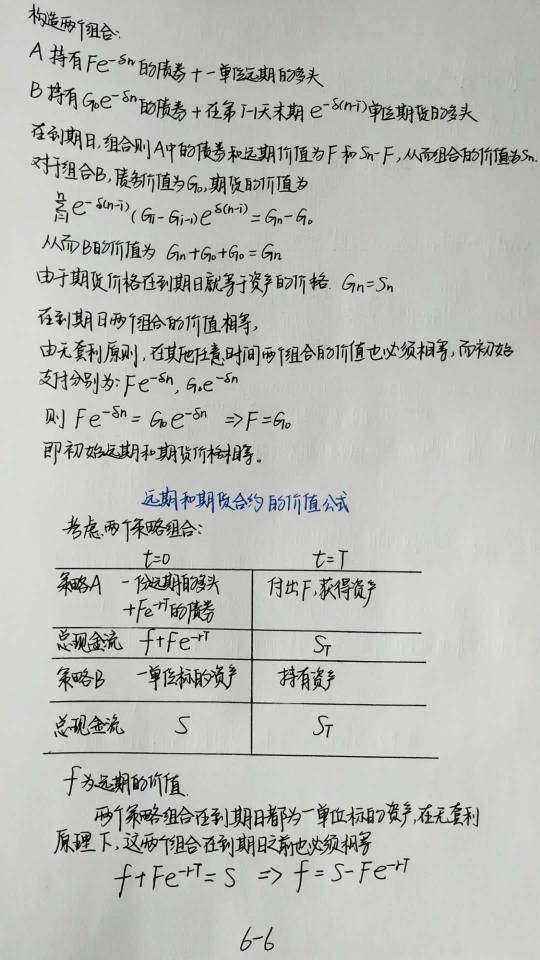 构造两个组合:
A 持有Fe^{-δn}的债券+一单位远期的多头
B 持有G₀e^{-δn}的债券+在第i-1天末期 e^{-δ(n-i)}单位期货的多头
在到期日,组合则A中的债券和远期价值为F和Sn-F,从而组合的价值为Sn.
对于组合B,债券价值为G₀,期货的价值为
\sum_{i=1}^{n} e^{-δ(n-i)}(G_i-G_{i-1})e^{δ(n-i)}=G_n-G₀
从而B的价值为 Gn+G₀+G₀=Gn
由于期货价格在到期日就等于资产的价格. Gn=Sn
在到期日两个组合的价值相等,
由无套利原则,在其他任意时间两个组合的价值也必须相等,而初始
支付分别为: Fe^{-δn}, G₀e^{-δn}
则 Fe^{-δn}=G₀e^{-δn} ⇒F=G₀
即初始远期和期货价格相等。
远期和期货合约的价值公式
考虑两个策略组合:
t=0 t=T
策略A 一份远期的多头 付出F,获得资产
+Fe^{-rT}的债券
总现金流 f+Fe^{-rT} S_T
策略B 一单位标的资产 持有资产
总现金流 S S_T
f为远期的价值.
两个策略组合在到期日都为一单位标的资产,在无套利
原理下,这两个组合在到期日之前也必须相等
f+Fe^{-rT}=S ⇒ f=S-Fe^{-rT}
6-6